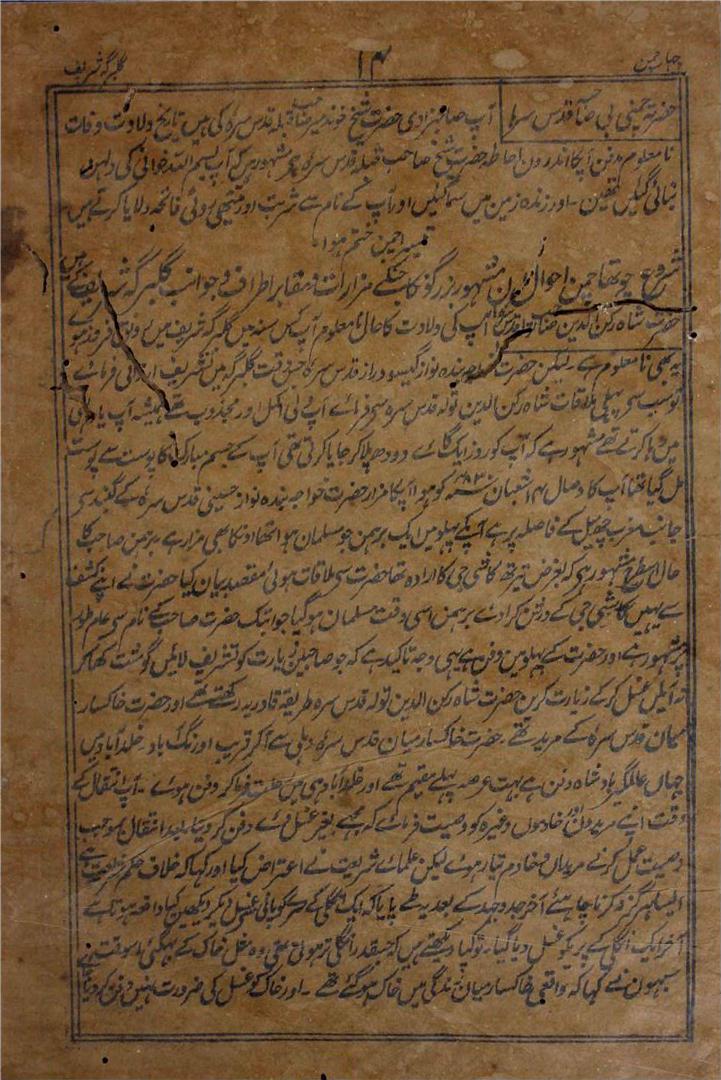 چہار چمن ۱۴ گلبرگہ شریف
حضرت حسینی بی صاحبہ قدس سرہا آپ صاحبزادی حضرت شیخ خوند میر صاحب قبلہ قدس سرہ کی ہیں تاریخ ولادت و وفات
نامعلوم مدفن آپکا اندرون احاطہ حضرت شیخ صاحب قبلہ قدس سرہ ہے مشہور ہیں کہ آپ بسم اللہ خوانی کی دلہن
بنائی گئیں تھیں ۔ اور زندہ زمین میں سما گئیں اور آپ کے نام سے شربت اور میٹھی روٹی فاتحہ دلایا کرتے ہیں
تیسرا چمن ختم ہوا ۔
شروع چوتھا چمن احوال میں ان مشہور بزرگوں کا جنکے مزارات و مقابر اطراف و جوانب گلبرگہ شریف کے ہیں
حضرت شاہ رکن الدین صاحب تولہ قدس سرہ آپ کی ولادت کا حال نامعلوم آپ کس سنہ میں گلبرگہ شریف میں رونق فرما ہوے
یہ بھی نامعلوم ہے ۔ لیکن حضرت خواجہ بندہ نواز گیسو دراز قدس سرہ جس وقت گلبرگہ میں تشریف ارزانی فرماے
تو سب سی پہلی ملاقات شاہ رکن الدین تولہ قدس سرہ سی فرماے آپ ولی اکمل اور مجذوب تھے ہمیشہ آپ یاد الہی
میں رہا کرتے تھے مشہور ہے کہ آپ کو روز ایک گاے دودھ پلا کر جایا کرتی تھی آپ کے جسم مبارک کا پوست سے پوست
مل گیا تھا آپ کا وصال ۴ شعبان کو ہوا آپکا مزار حضرت خواجہ بندہ نواز حسینی قدس سرہ کے گنبد سی
جانب مغرب چھ میل کے فاصلہ پر ہے آپ کے پہلو میں ایک برہمن جو مسلمان ہوا تھا اونکا بھی مزار ہے برہمن صاحب کا
حال اسطرح مشہور ہی کہ بغرض تیرتھ کاشی جی کا ارادہ تھا حضرت سی ملاقات ہوئی مقصد بیان کیا حضرت نے اپنے کشف
سے یہیں کاشی جی کے درشن کرادے برہمن اسی وقت مسلمان ہوگیا جو ابتک حضرت صاحب کے نام سی عام طور
پر مشہور ہے اور حضرت کے پہلو میں دفن ہے یہی وجہ تاکید ہے کہ جو صاحبین زیارت کو تشریف لائیں گوشت کھا کر
نہ آئیں غسل کر کے زیارت کریں حضرت شاہ رکن الدین تولہ قدس سرہ طریقہ قادریہ رکھتے تھے اور حضرت خاکسار
میاں قدس سرہ کے مرید تھے ۔ حضرت خاکسار میاں قدس سرہ دہلی سے آکر قریب اورنگ آباد خلدآباد میں
جہاں عالمگیر بادشاہ دفن ہے بہت عرصہ پہلے مقیم تھے اور خلدآباد ہی میں رحلت فرما کر دفن ہوے ۔ آپ انتقال کے
وقت اپنے مریدوں اور خادموں وغیرہ کو وصیت فرماے کہ مجھے بغیر غسل دے دفن کر دینا بعد انتقال بموجب
وصیت عمل کرنے مریداں و خادم تیار ہوے لیکن علماے شریعت نے اعتراض کیا اور کہا کہ خلاف حکم شریعت ہے
ایسا ہرگز نہ کرنا چاہئے آخر جد و جہد کے بعد یہ طے پایا کہ ایک انگلی کے سرے کو پانی غسل دیکر دیکھیں کیا واقعہ ہوتا ہے
آخر ایک انگلی کے پر کو غسل دیا گیا ۔ تو کیا دیکھتے ہیں کہ جسقدر انگلی تر ہوئی تھی وہ مثل خاک کے بہگئی اسوقت
سبھوں نے کہا کہ واقعی خاکسار میاں زندگی میں خاک ہوگئے تھے ۔ اور خاک کو غسل کی ضرورت نہیں دفن کر دیا